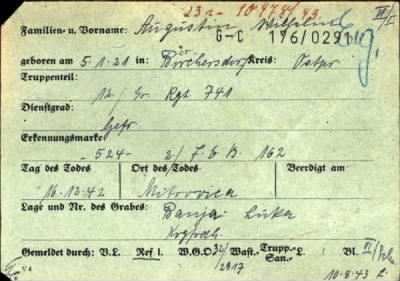 23a - 10478/43 III/E
Familien- u. Vorname: Augustin Wilhelm
G-C 176/0291
geboren am 5.1.21 in: Börchersdorf Kreis: Ostpr
Truppenteil:
12/ Gr Rgt 741
Dienstgrad:
Gefr
Erkennungsmarke
-524- 2/ J.E.B. 162
Tag des Todes Ort des Todes: Beerdigt am
16.12.42 Mitrovica
Lage und Nr. des Grabes:
Banja Luka
Gemeldet durch: V.L. Ref I. W.G.O 32/2917 Wast.- Trupp.- San.- L. Bl VI/
10.8.43 L